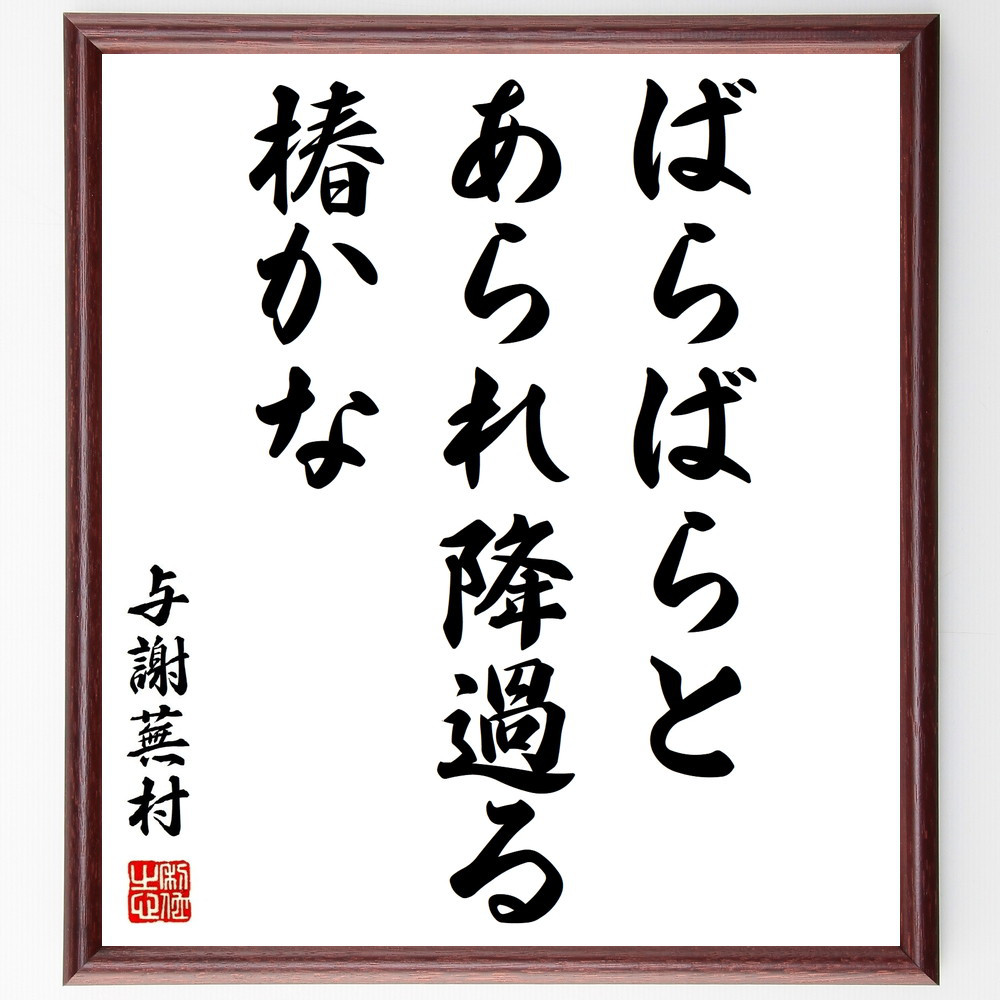 ばらばらと
あられ降過る
椿かな
与謝蕪村